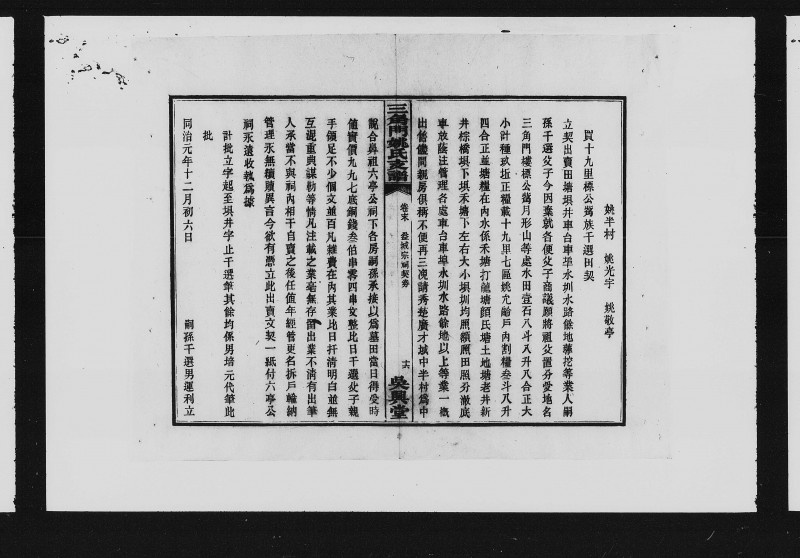 姚半村　姚光宇　姚敬亭
買十九里標公黨族千選田契
立契出賣田塘垻井車台車埠水圳水路餘地蓀挖等業人嗣
孫千選父子今因棄就各便父子商議願將祖父置分受地名
三角門樓標公黨月形山等處水田壹石八斗八升八合正大
小計種玖坵正糧載十九里七區姚尤齡戶內割糧叁斗八升
四合正並塘糧在內水係禾塘打龍塘顏氏塘土地塘老井新
井棕橋垻下垻禾塘下左右大小垻圳均照額照田照分澈底
車放蔭注管理各處車台車埠水圳水路餘地以上等業一概
出售儘問親房俱稱不便再三浼請秀楚廣才城中半村爲中
三角門姚氏支譜
卷末　益城宗祠契券
十六
吳興堂
說合鼻祖六亭公祠下各房嗣孫承接以爲墓田當日得受時
値實價九九七底銅錢叁伯串零四串文整比日千選父子親
手領足不少個文並百凡雜費在內其業比日扞清明白並無
互混重典謀勒等情凡注載之業毫無存留出業不清有出筆
人承當不與祠內相干自賣之後任值年經管更名拆戶輪納
管理永無續贖異言今欲有憑立此出賣文契一紙付六亭公
祠永遠收執爲據
計批立字起至垻井字止千選筆其餘均係男培元代筆此
批
同治元年十二月初六日　嗣孫千選男運利立